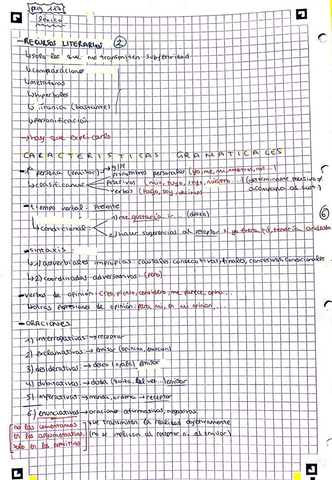 pág 117
léxico
- RECURSOS LITERARIOS 2
↳ solo los que nos transmiten subjetividad
↳ comparaciones
↳ metáforas
↳ hipérboles
↳ ironía (bastante)
↳ personificación
→ hay que explicarlo
CARACTERÍSTICAS GRAMATICALES
- 1ª persona (emisor) → sg/pl
↳ pronombres personales (yo, me, mi, nosotros, nos...)
↳ clasificamos
posesivos (mío, tuyo, suyo, nuestro...) (determinante posesivo
acompaña al sust)
verbos (hago, soy, decimos)
- tiempo verbal: presente 6
↳ condicional
1) me gustaría ir... (deseo)
2) hacer sugerencias al receptor si yo fuera tú, tendría cuidado
- SINTAXIS
↳ 1) adverbiales impropias: causales consecutivas, finales, concesivas condicionales
↳ 2) coordinadas adversativas (pero)
- verbos de opinión: creo, pienso, considero, me parece, opino...
↳ otras expresiones de opinión: para mí, en mi opinión,...
- ORACIONES
1) interrogativas → receptor
2) exclamativas → emisor (opinión, emoción)
3) desiderativas → deseo (ojalá) emisor
4) dubitativas → duda (quizá, tal vez...) emisor
5) imperativas → manda, ordena → receptor
6) enunciativas → oraciones afirmativas, negativas
no las comentamos
en las argumentativas
solo en las expositivas
↳ se transmiten la realidad objetivamente
(no se implican al receptor ni al emisor)